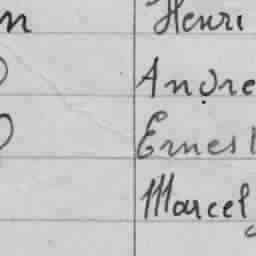 n Henri
Andre
Ernest
Marcel